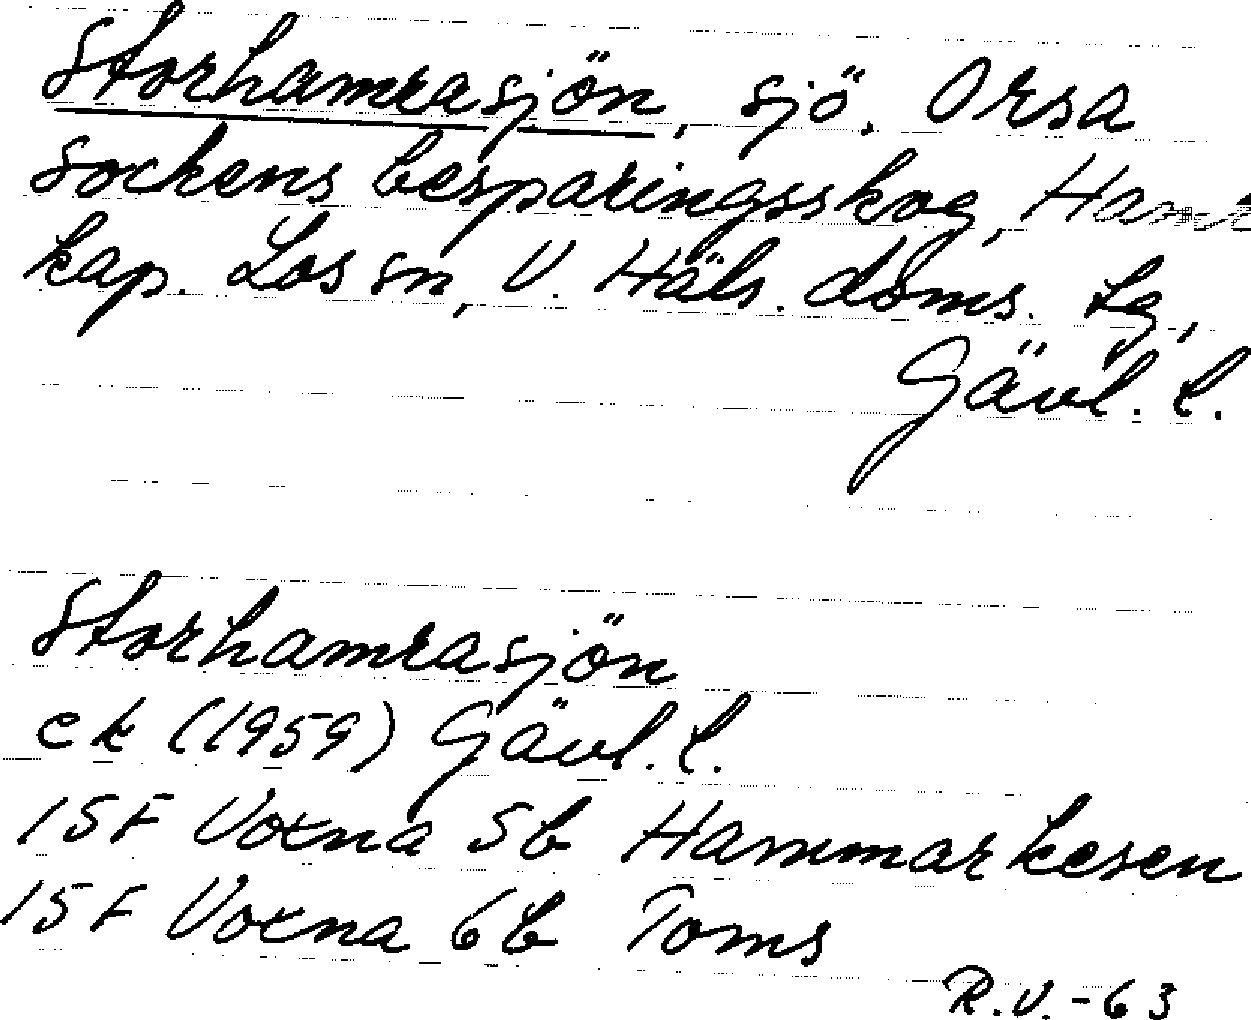 Storhamrasjön, sjö. Orsa
sockens besparingsskog, Hamra
kap. Los sn, V. Häls. doms. tg,
Gävl. l.
Storhamrasjön
ek (1959) Gävl. l.
15F Voxna 5b Hammarkesen
15F Voxna 6b Toms
R.V.-63